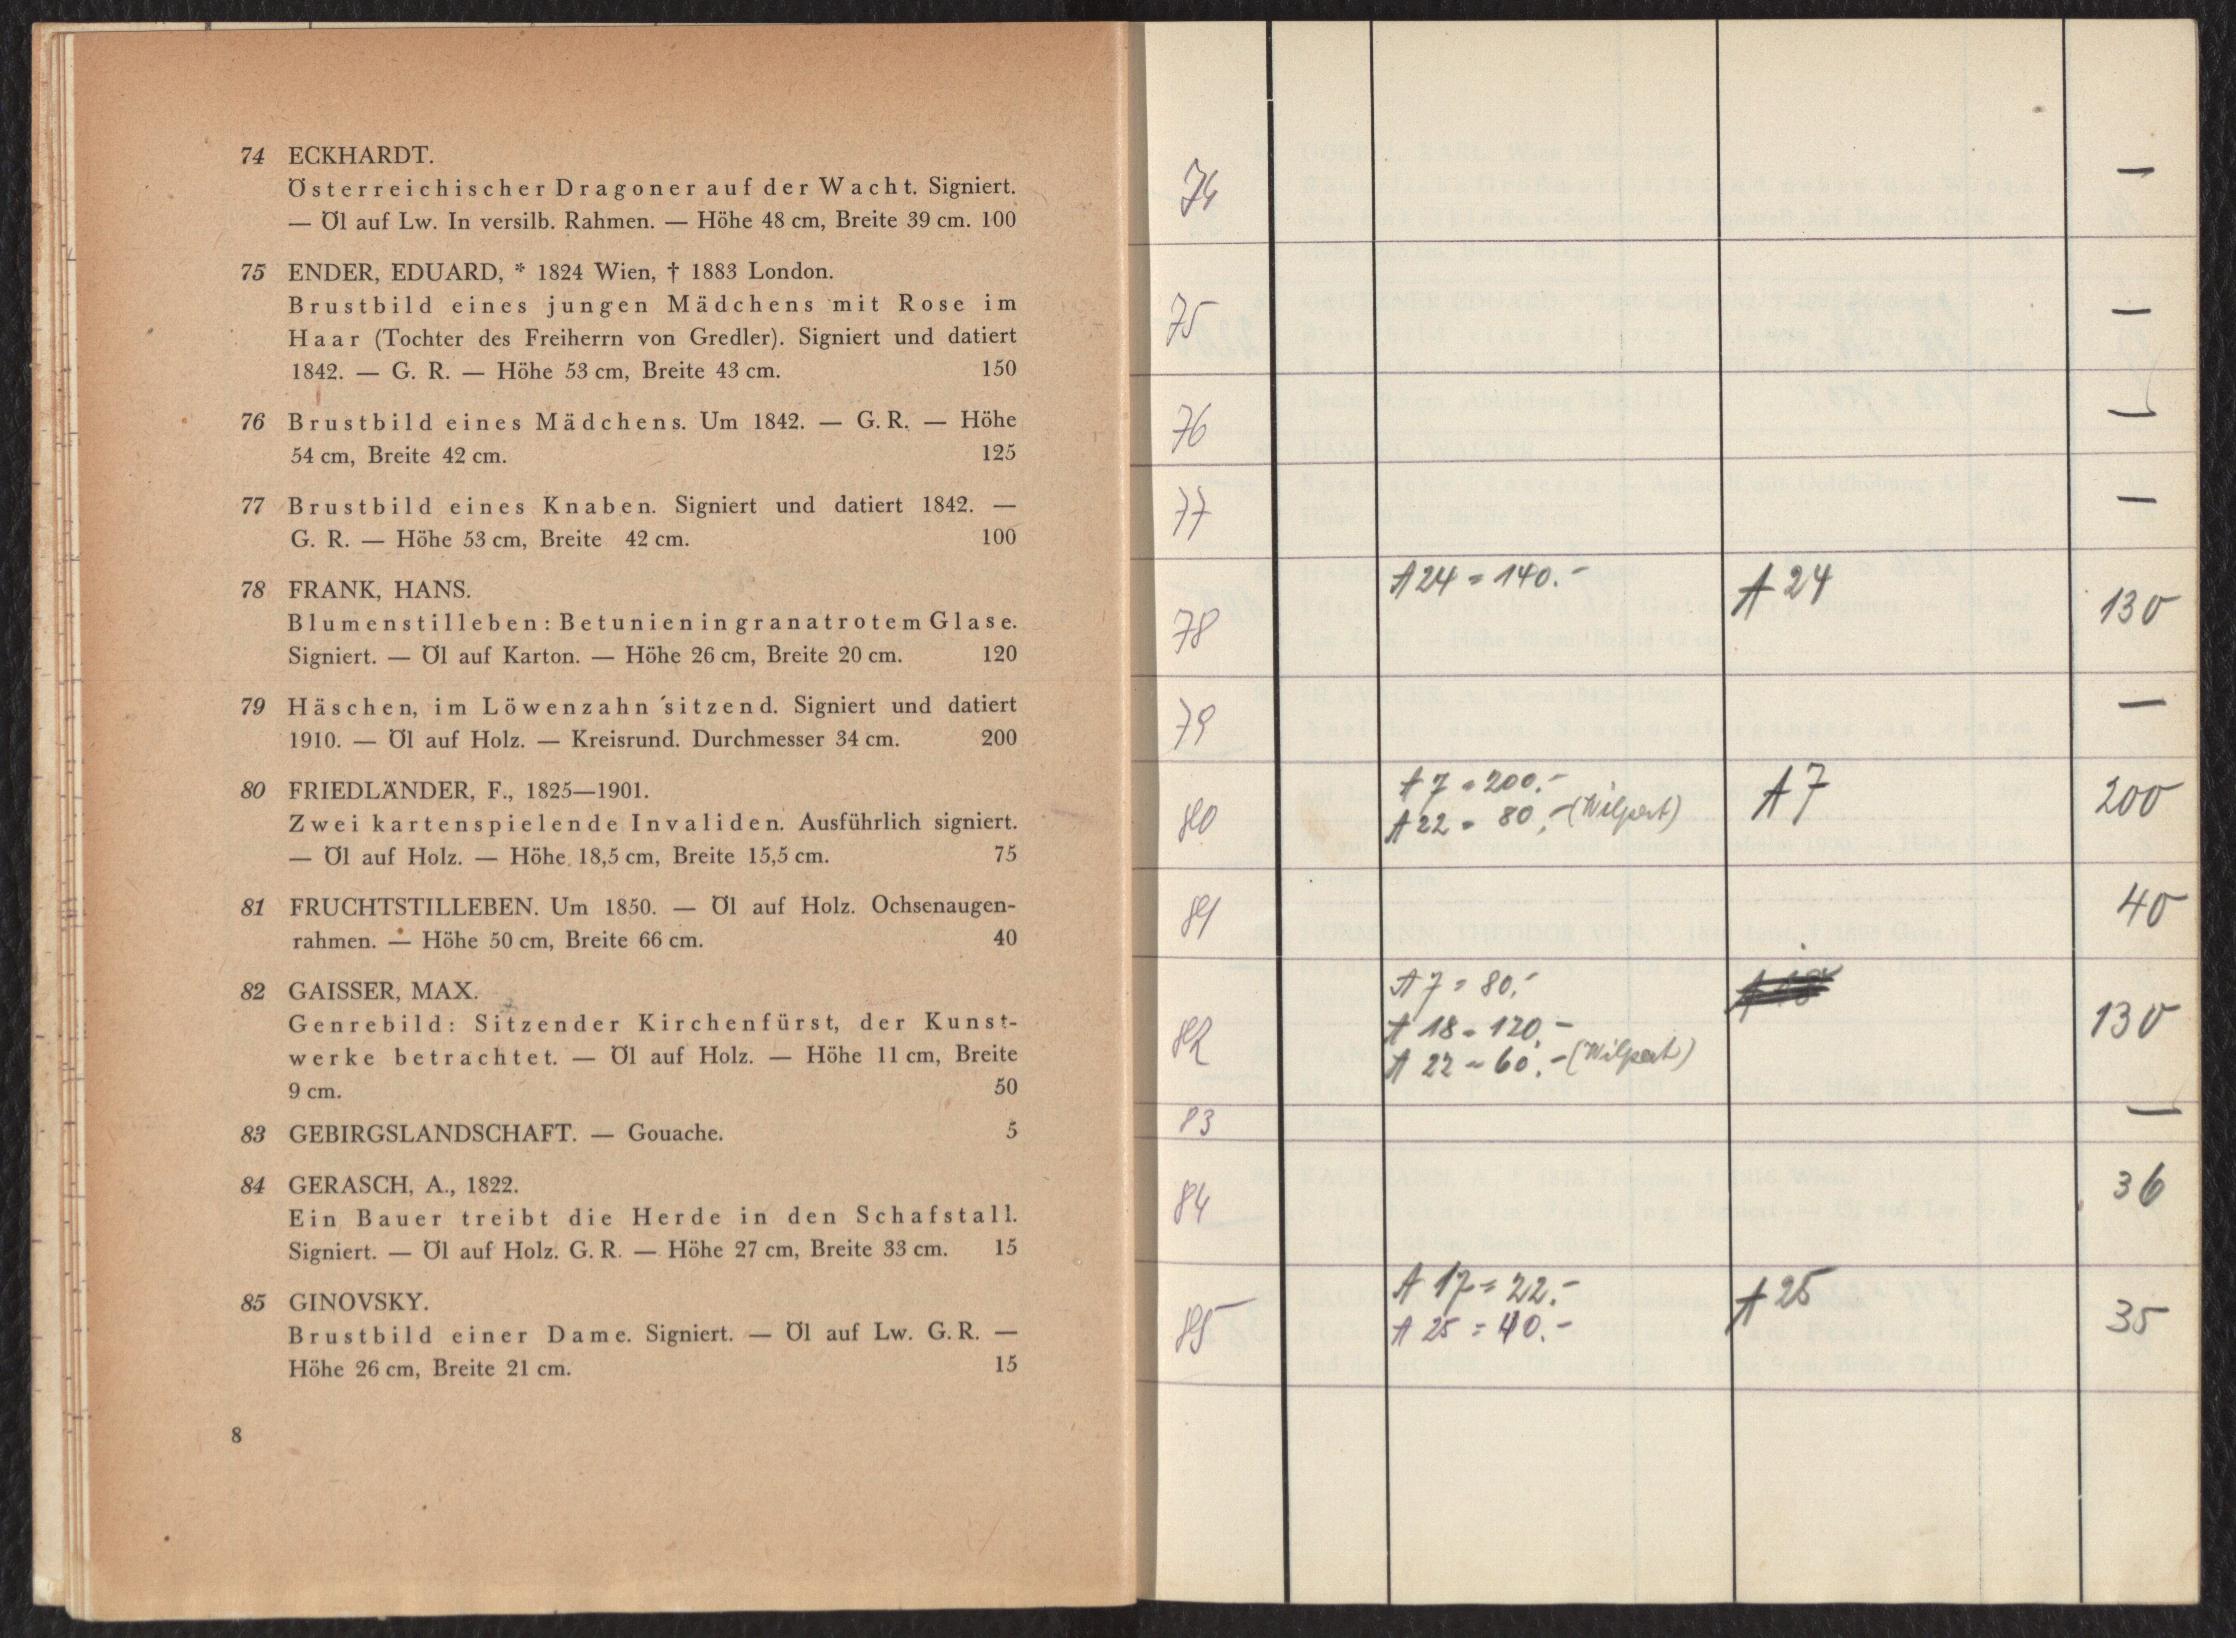 74 ECKHARDT.
Österreichischer Dragoner auf der Wacht. Signiert.
— Öl auf Lw. In versilb. Rahmen. — Höhe 48 cm, Breite 39 cm. 100
75 ENDER, EDUARD, * 1824 Wien, † 1883 London.
Brustbild eines jungen Mädchens mit Rose im
Haar (Tochter des Freiherrn von Gredler). Signiert und datiert
1842. — G. R. — Höhe 53 cm, Breite 43 cm. 150
76 Brustbild eines Mädchens. Um 1842. — G. R. — Höhe
54 cm, Breite 42 cm. 125
77 Brustbild eines Knaben. Signiert und datiert 1842. —
G. R. — Höhe 53 cm, Breite 42 cm. 100
78 FRANK, HANS.
Blumenstilleben: Betunien in granatrotem Glase.
Signiert. — Öl auf Karton. — Höhe 26 cm, Breite 20 cm. 120
79 Häschen, im Löwenzahn sitzend. Signiert und datiert
1910. — Öl auf Holz. — Kreisrund. Durchmesser 34 cm. 200
80 FRIEDLÄNDER, F., 1825—1901.
Zwei kartenspielende Invaliden. Ausführlich signiert.
— Öl auf Holz. — Höhe 18,5 cm, Breite 15,5 cm. 75
81 FRUCHTSTILLEBEN. Um 1850. — Öl auf Holz. Ochsenaugen-
rahmen. — Höhe 50 cm, Breite 66 cm. 40
82 GAISSER, MAX.
Genrebild: Sitzender Kirchenfürst, der Kunst-
werke betrachtet. — Öl auf Holz. — Höhe 11 cm, Breite
9 cm. 50
83 GEBIRGSLANDSCHAFT. — Gouache. 5
84 GERASCH, A., 1822.
Ein Bauer treibt die Herde in den Schafstall.
Signiert. — Öl auf Holz. G. R. — Höhe 27 cm, Breite 33 cm. 15
85 GINOVSKY.
Brustbild einer Dame. Signiert. — Öl auf Lw. G. R. —
Höhe 26 cm, Breite 21 cm. 15
8
74 —
75 —
76 —
77 —
78 A 24 = 140.- A 24 130
79 —
80 A 7 = 200.- A 7 200
A 22 = 80.- (Wilpert)
81 40
82 A 7 = 80.- 130
A 18 = 120.-
A 22 = 60.- (Wilpert)
83 —
84 36
85 A 17 = 22.- A 25 35
A 25 = 40.-